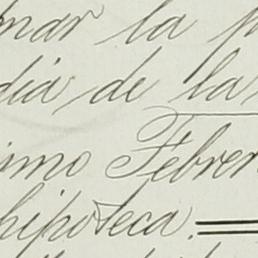 mar la p
dia de la
imo Febrer
hipoteca.